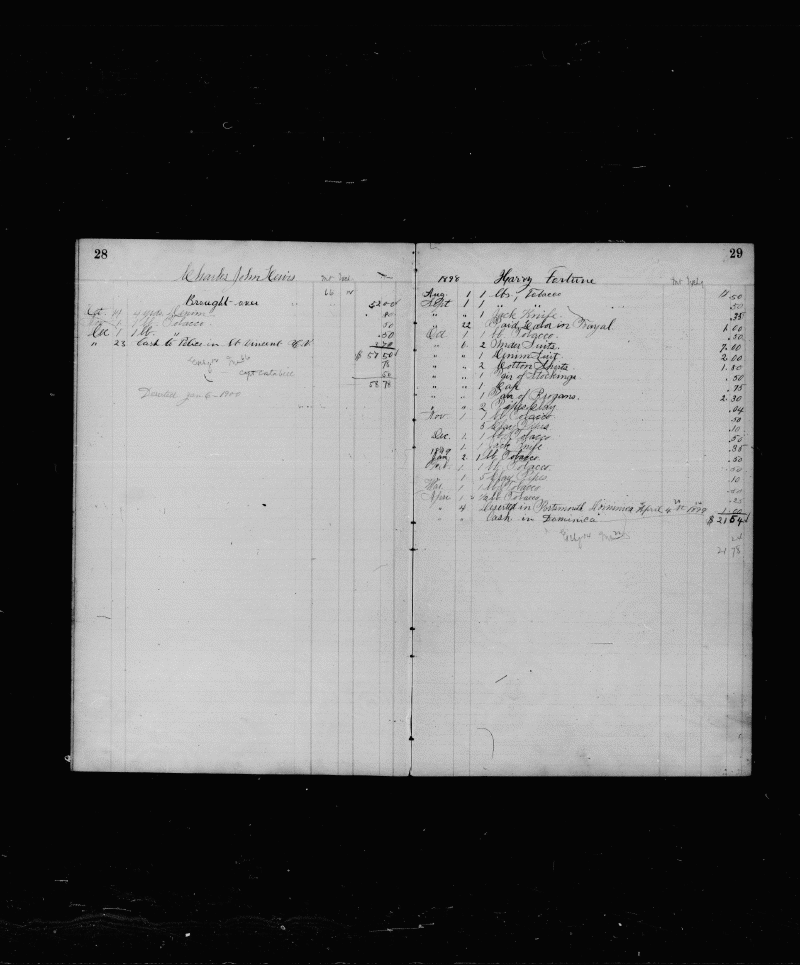 28
Charles John
Brought over 52 00
Oct 4 yds Denim 80
Tobacco 50
Dec 1 1 lb. " .50
" 23 Cash to Police in St Vincent
$ 57 50
78
50
58 78
Deserted Jan 6 - 1900
29
1898 Harry Fortune
Aug 1 1 lb, Tobacco .50
Sept 1 1 " " .50
" " 1 Jack Knife .35
" 22 Paid in Fayal 1 00
Oct 1 1 lb Tobacco .50
" 1 2 Under Suits 7.00
" " 1 Denim Suit 2 00
" " 2 Cotton Shirts 1.80
" " 1 Pair of Stockings .50
" " 1 Cap .75
" " 1 Pair of Brogans. 2 30
" " 2 Pipes Clay .04
Nov. 1 lb Tobacco 50
3 Clay Pipes .10
Dec. 1 1 lb Tobacco 50
" 1 Jack Knife .35
1899
Jan 2 1 lb Tobacco .50
1 1 lb Tobacco. 50
1 5 Clay Pipes .10
Mar 1 1 lb Tobacco 50
April 1 1/2 lb Tobacco .25
" 4 Deserted in Portsmouth Dominica April 4 1899
" " Cash in Dominica 1.00
$ 21 54
24
21 78